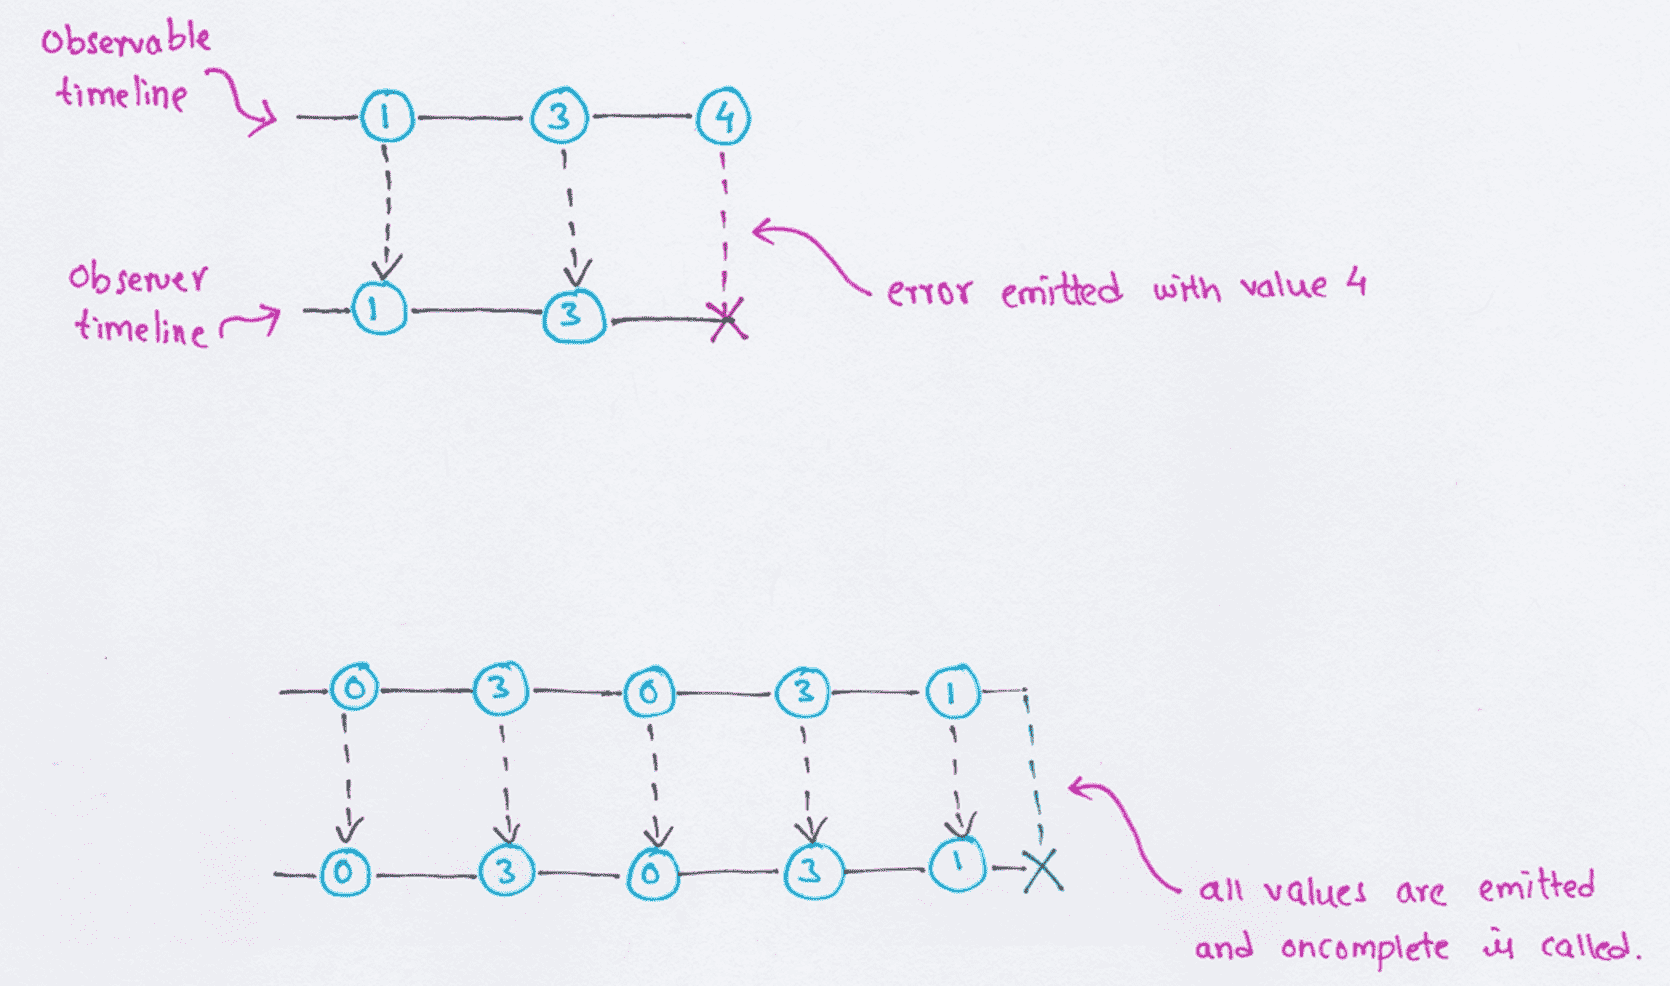 Observable
timeline
1 3 4
Observer
timeline
1 3
error emitted with value 4
0 3 0 3 1
0 3 0 3 1
all values are emitted
and oncomplete is called.